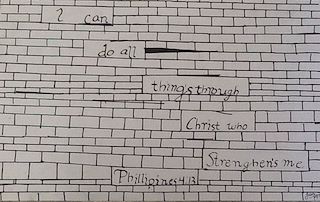 I can
do all
things through
Christ who
Strenghens me
Phillipines 4:13